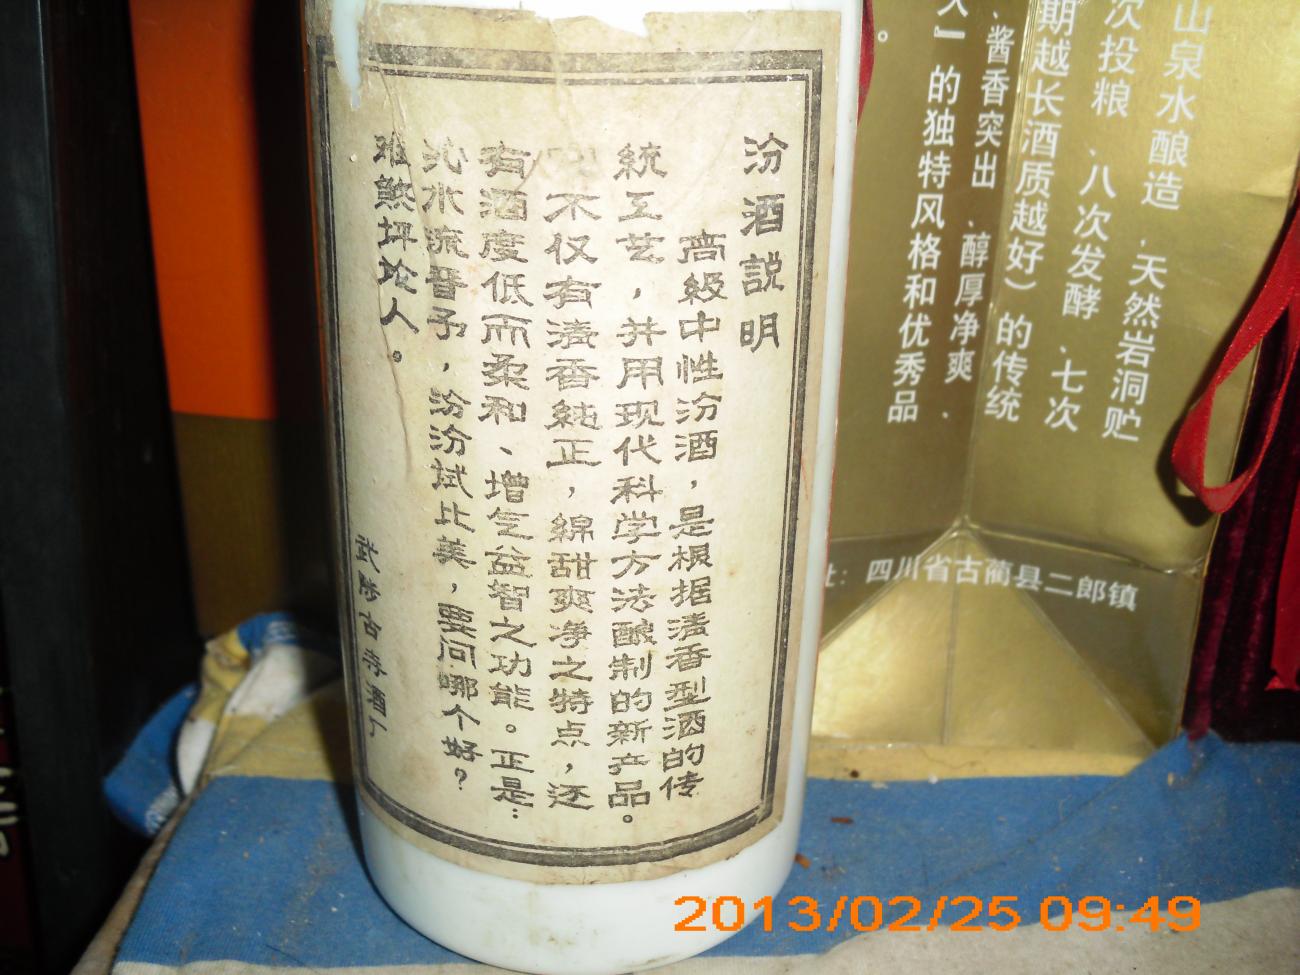 汾酒説明
高級中性汾酒，是根据清香型酒的传
統工艺，并用现代科学方法酿制的新产品。
不仅有清香純正，綿甜爽净之特点，还
有酒度低而柔和、增气益智之功能。正是：
沁水流晋予，汾汾試比美，要问哪个好？
难煞坪论人。
武陟古寺酒丁
山泉水酿造、天然岩洞贮
次投粮、八次发酵、七次
期越长酒质越好）的传统
、酱香突出、醇厚净爽、
』的独特风格和优秀品
。
：四川省古蔺县二郎镇
2013/02/25 09:49